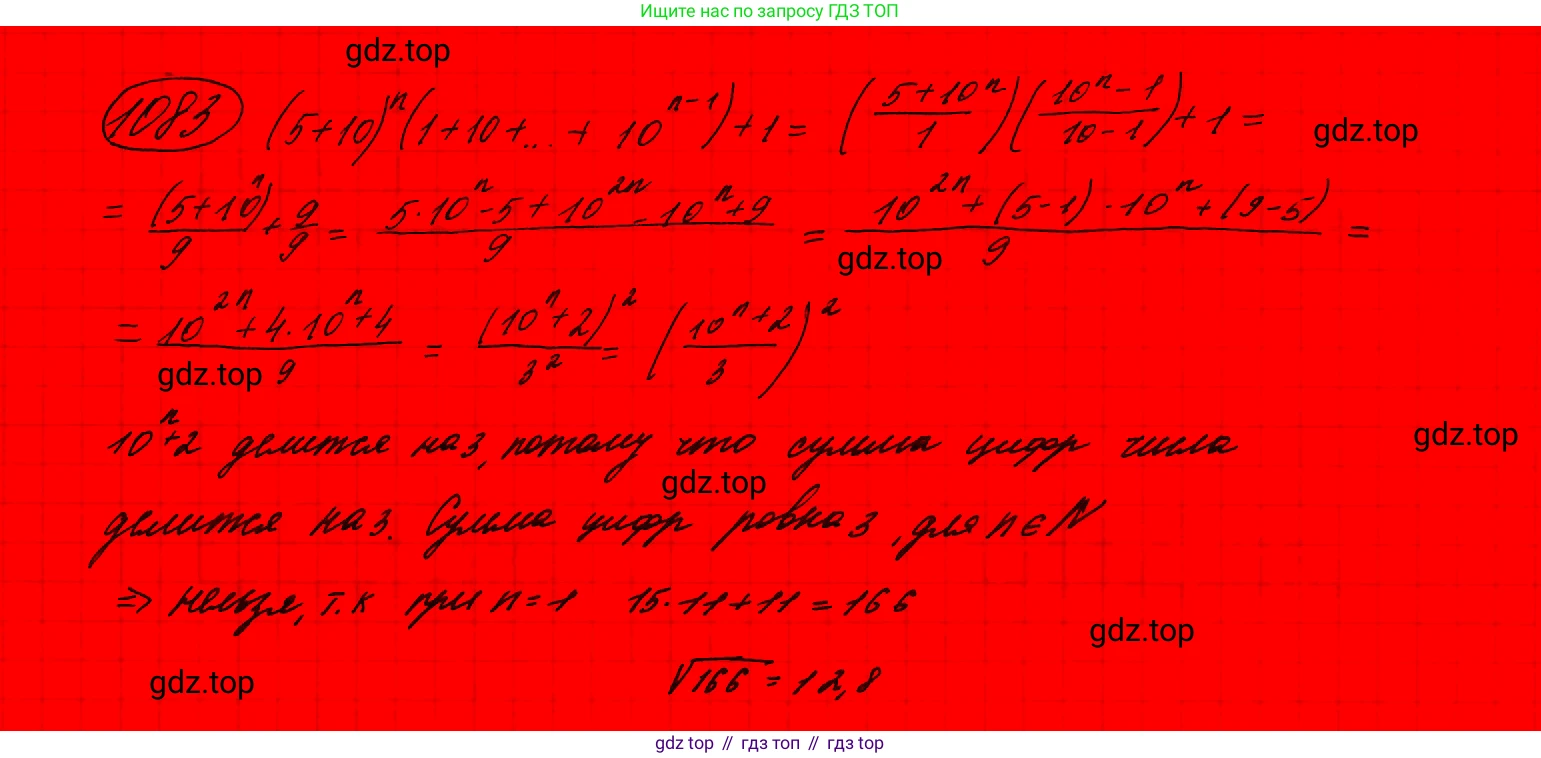 Ищите нас по запросу ГДЗ ТОП
gdz.top
1083 (5+10)^n (1+10+...+ 10^{n-1})+1 = ((5+10^n)/1)((10^n-1)/(10-1))+1 =
gdz.top
= (5+10^n)/9 + 9/9 = (5·10^n-5+10^{2n}-10^n+9)/9 = (10^{2n}+(5-1)·10^n+(9-5))/9 =
gdz.top
= (10^{2n}+4·10^n+4)/9 = (10^n+2)^2/3^2 = ((10^n+2)/3)^2
gdz.top
10^n+2 делится на 3, потому что сумма цифр числа
gdz.top
gdz.top
делится на 3. Сумма цифр ровна 3, для n∈N
⇒ нельзя, т.к при n=1 15·11+11=166
gdz.top
√166 = 12,8
gdz.top
gdz top // гдз топ // гдз top